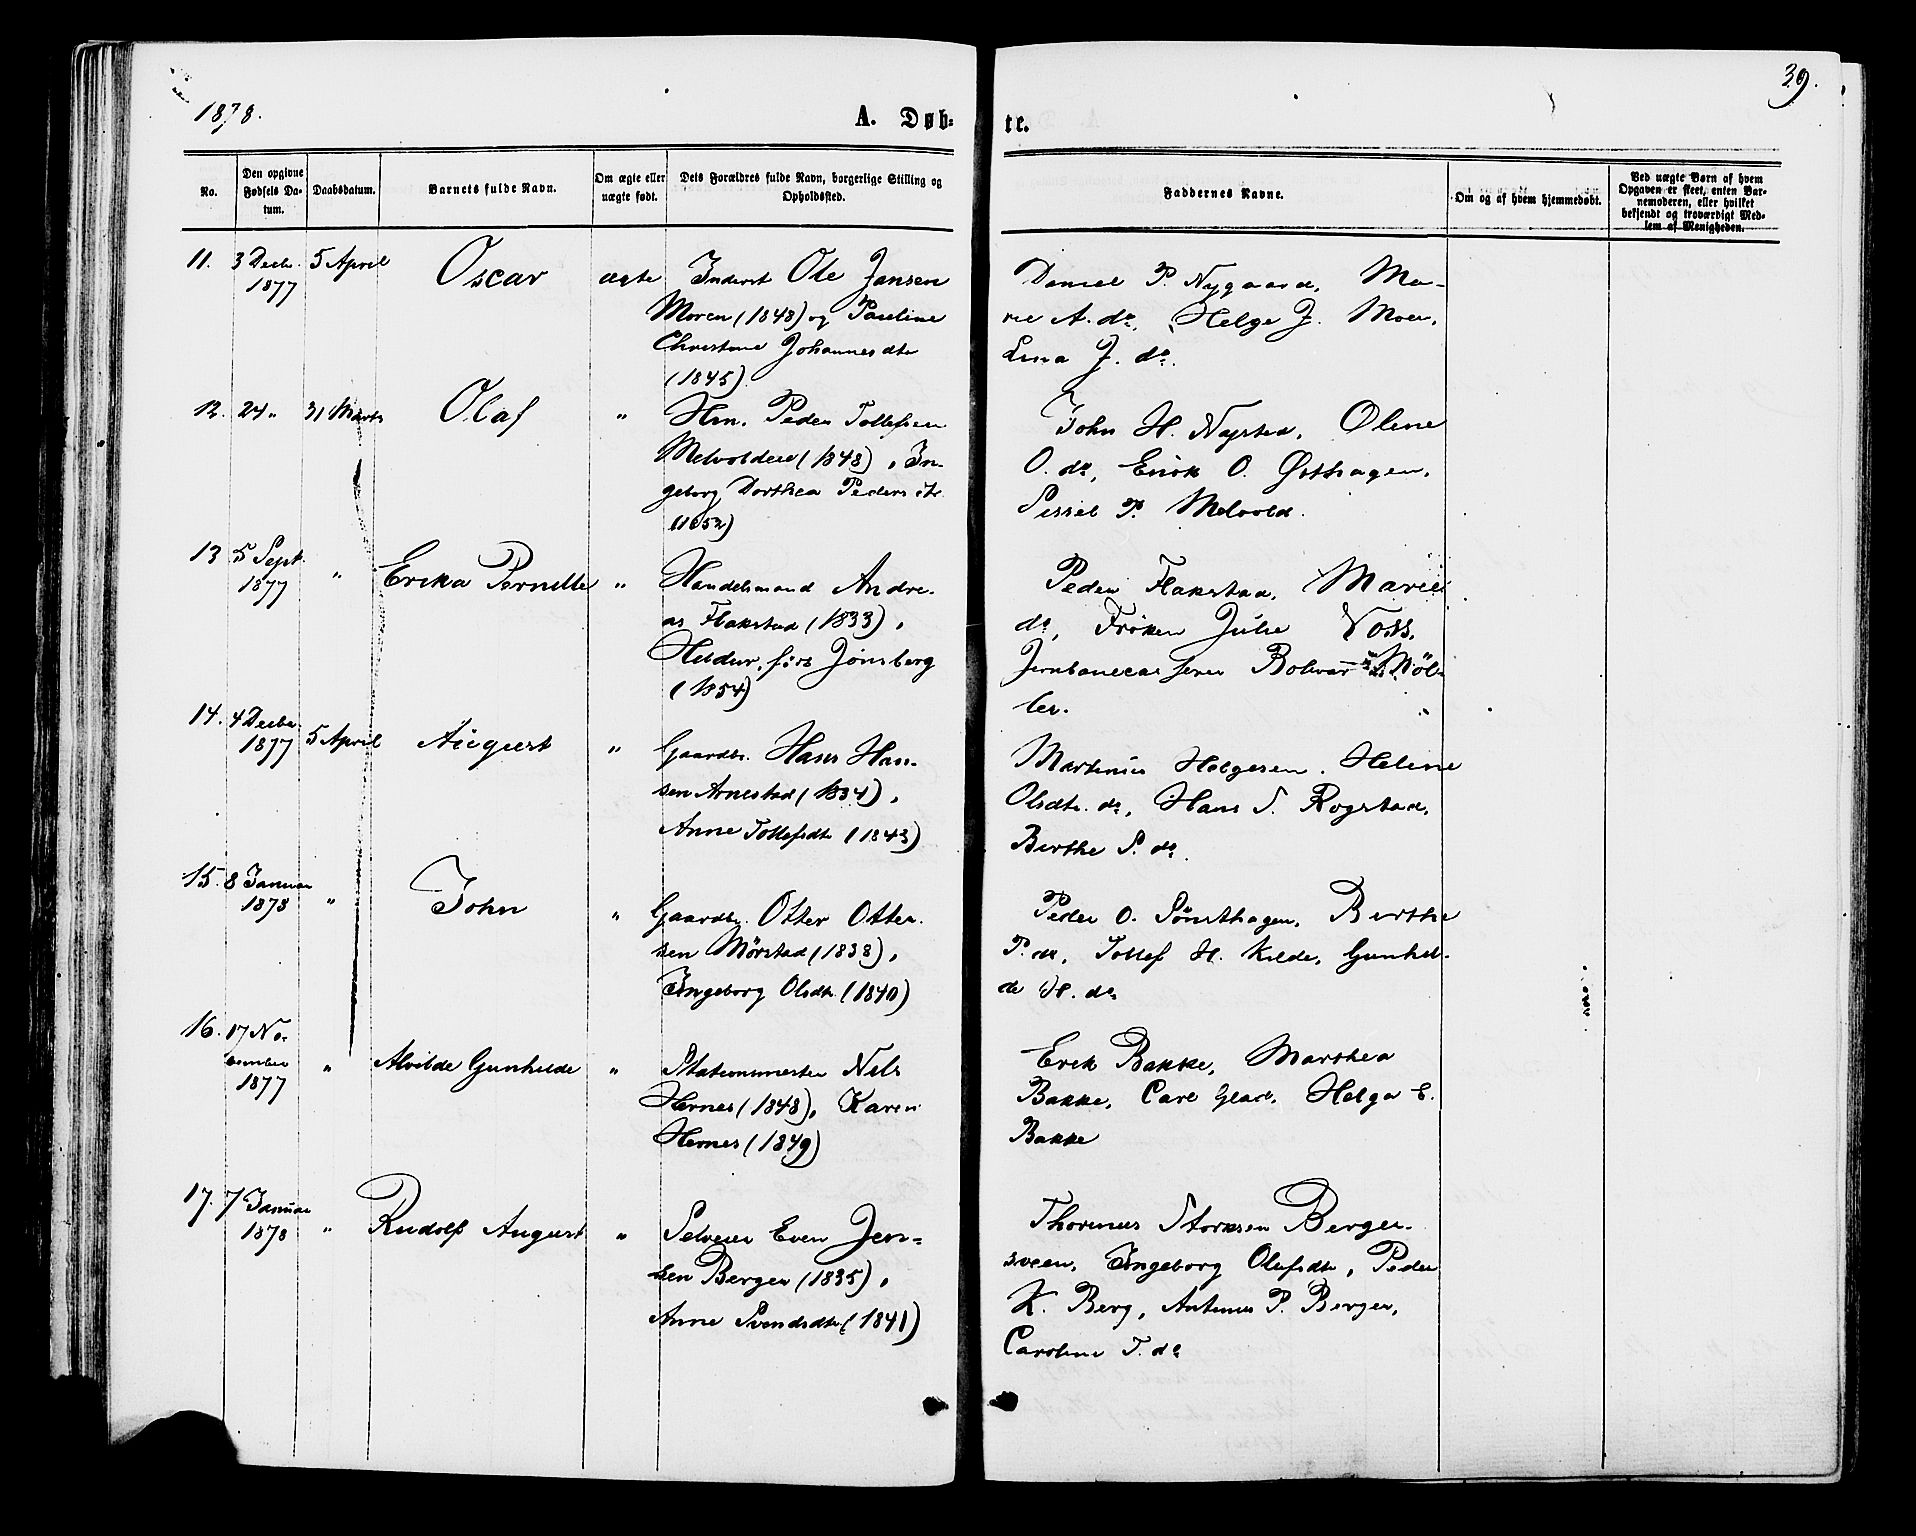 1878.
A. Døb-
te.
39.
No.
Den opgivne
Fødsels Da-
tum.
Daabsdatum.
Barnets fulde Navn.
Om ægte eller
uægte født.
Dets Forældres fulde Navn, borgerlige Stilling og
Opholdssted.
Faddernes Navne.
Om og af hvem hjemmedøbt.
Ved uægte Børn af hvem
Opgaven er skeet, enten Bar-
nemoderen, eller hvilket
bekjendt og troværdigt Med-
lem af Menigheden.
11. 3 Decbr. 5 April Oscar ægte Inderst Ole Jansen
1877
Moren (1848) og Pauline
Christine Johannesdtr
(1845).
Daniel P. Nygaard, Ma-
rie A. do, Helge J. Moen,
Lina J. do.
12. 24 " 31 Marts Olaf " Hm. Peder Tollefsen
Melvoldeie (1848), In-
geborg Dorthea Pedersdtr.
(1852)
John H. Nysted, Oline
O. do, Erik O. Østhagen,
Sissel P. Melvold.
13 5 Sept. " Erika Pernille " Handelsmand Andre-
1877
as Flakstad (1833),
Heldur, før Jønsberg
(1854)
Peder Flakstad, Marie
do, Frøken Julie Voss,
Jernbanecasserer Bolivar Möl-
ler.
14. 4 Decbr. 5 April August " Gaardbr. Hans Han-
1877
sen Arnestad (1834),
Anne Tollefsdtr (1843)
Martinus Helgesen, Helene
Olsdtr. do, Hans S. Rogstad,
Birthe S. do.
15. 8 Januar " John " Gaardbr. Otter Otter-
1878
sen Mørstad (1838),
Ingeborg Olsdtr. (1840)
Peder O. Sønsthagen, Birthe
P. do, Tollef H. Kilde, Gunhil-
de H. do
16. 17 No-
vember " Alvilde Gunhilde " Stationsmester Nils
1877
Hernes (1848), Karen
Hernes (1849)
Erik Bakke, Marthea
Bakke, Carl Glad, Helga E.
Bakke
17. 7 Januar " Rudolf August " Selveier Even Jen-
1878
sen Berger (1835),
Anne Svendsdtr (1841)
Thorinus Storksen Berger-
sveen, Ingeborg Olufsdtr, Peder
K. Berg, Antinus P. Berger,
Caroline T. do